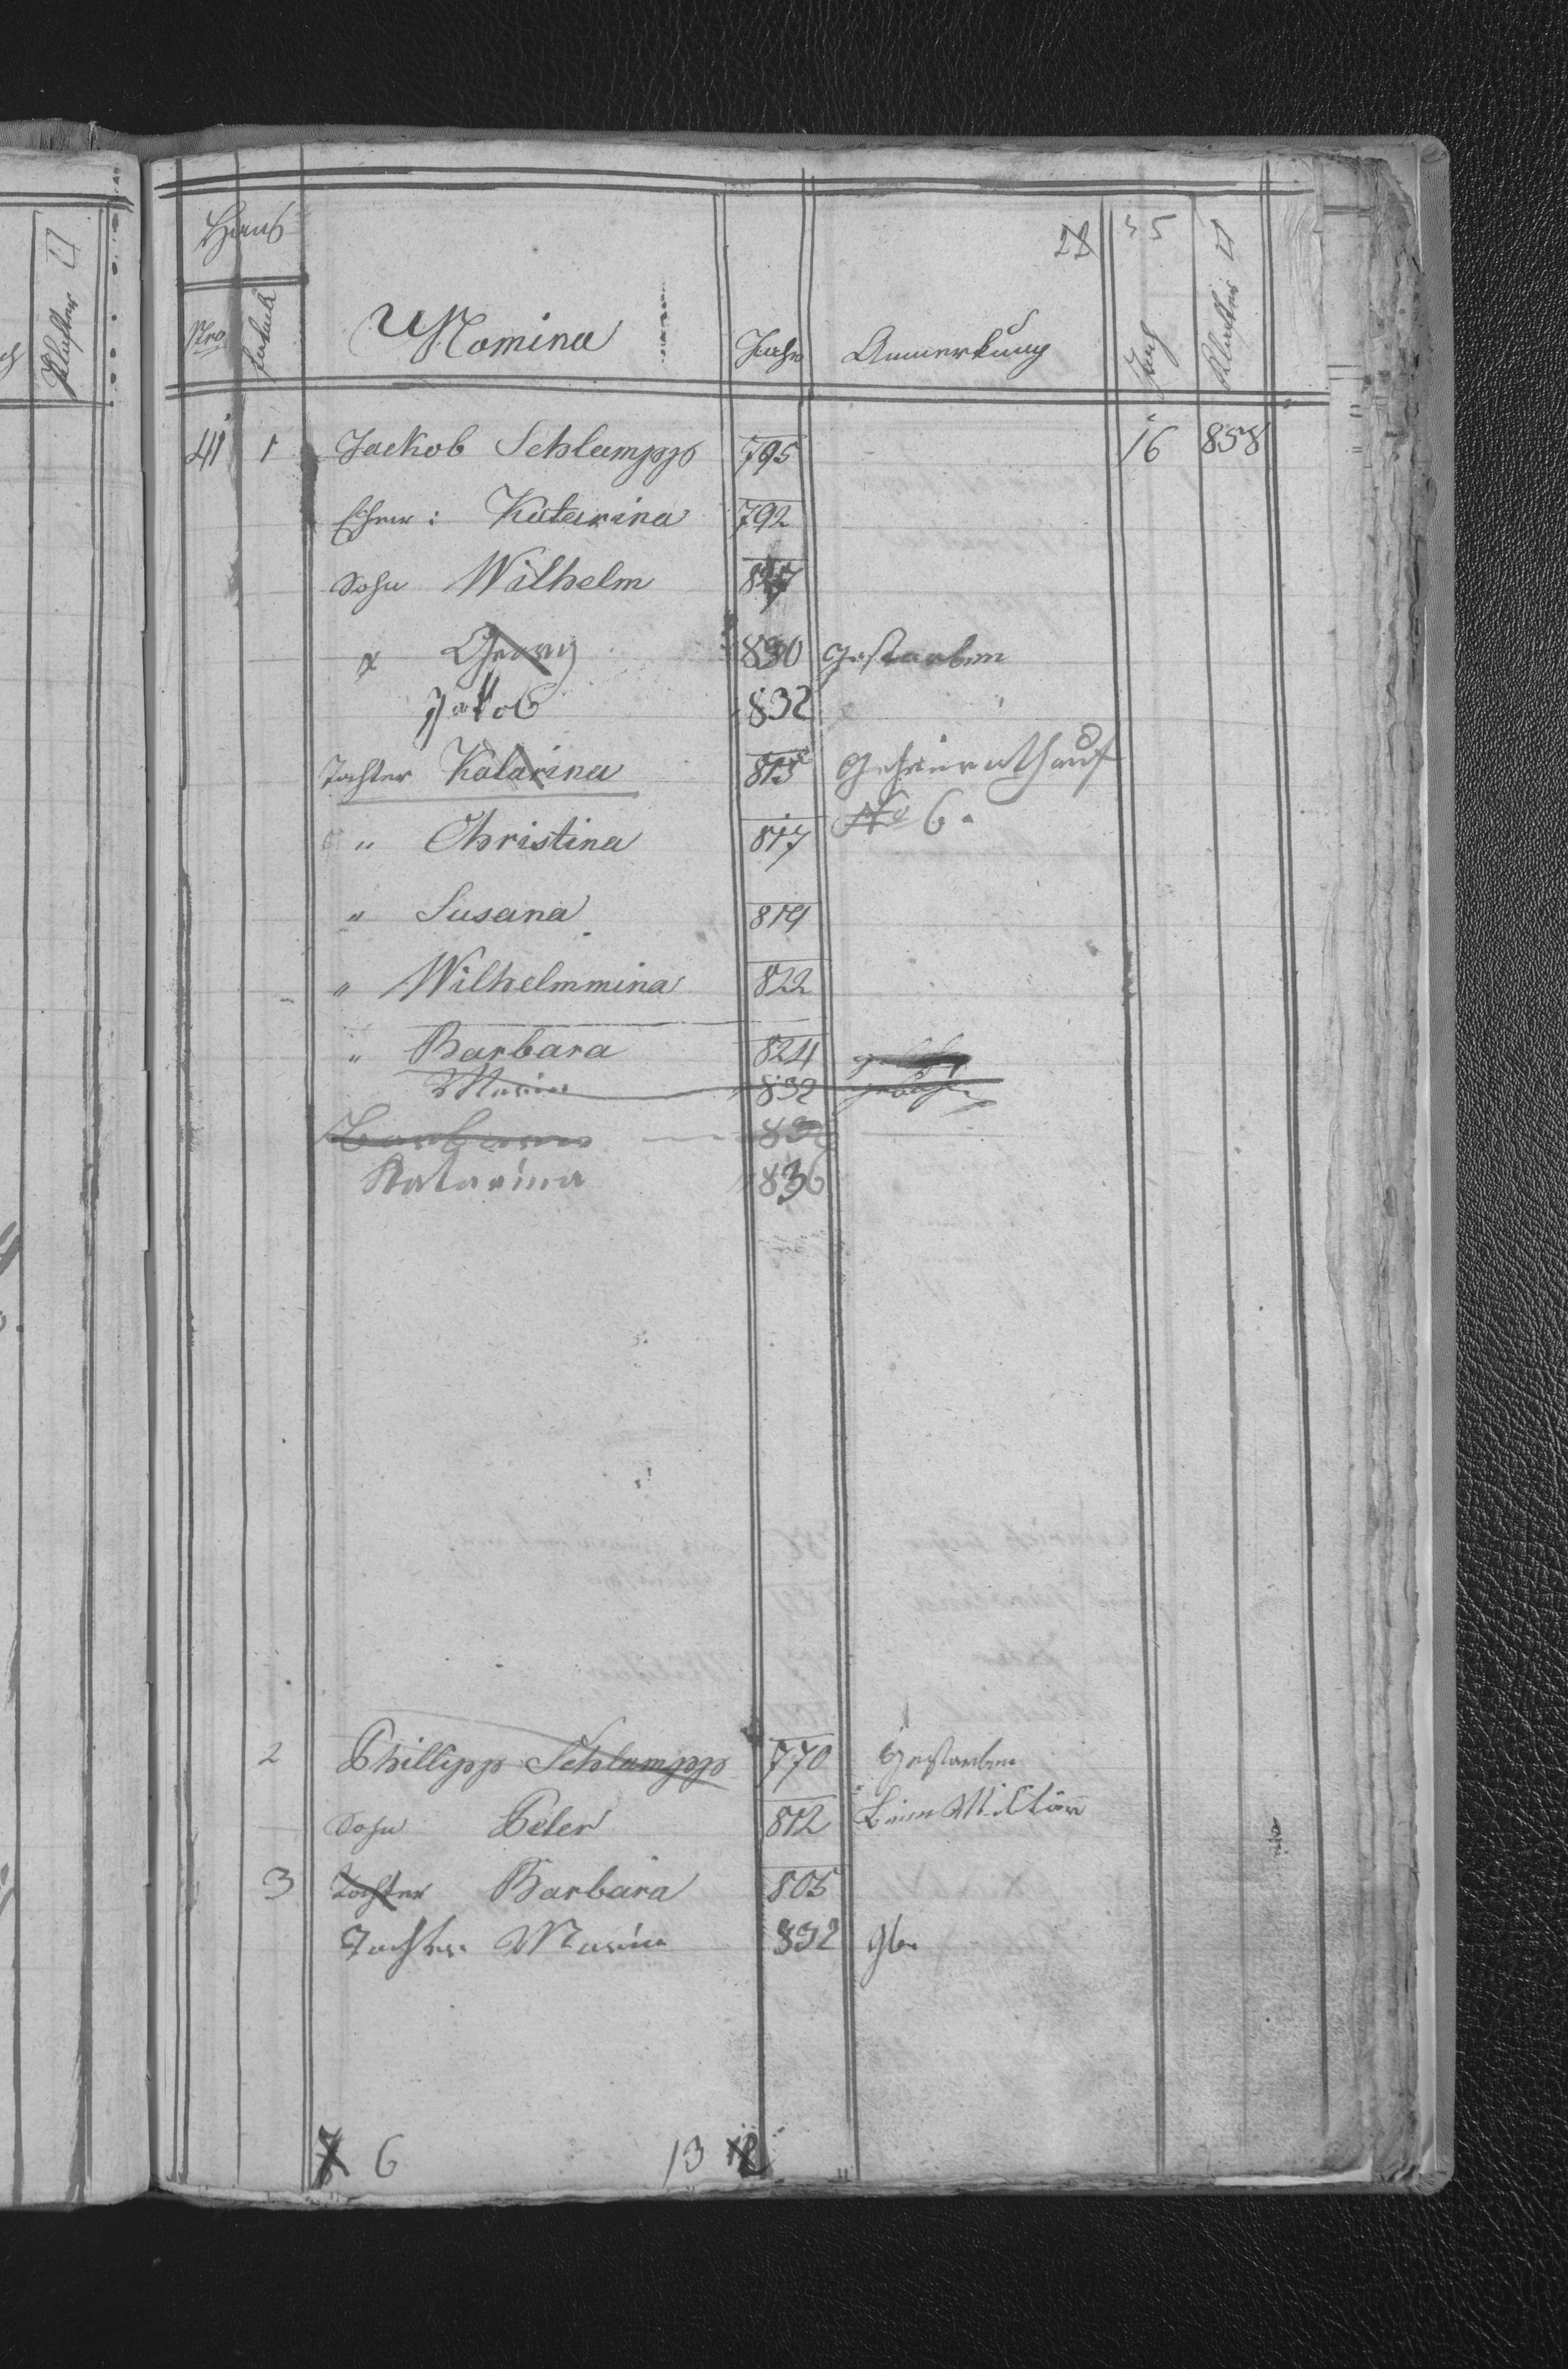 Klafter □
Haus
22 35
Nro Nomina Jahr Anmerkung Joch Klafter □
41 1 Jackob Schlampp 795 16 858
Katarina 792
Sohn Wilhelm
x Georg 830 gestorben
Jakob 832
Tochter Katarina 815 Geheirath auf
No 6.
" Christina 817
" Susana 819
" Wilhelmmina 822
" Barbara 824
Maria 832
Barbara
Katarina 836
2 Phillipp Schlampp 770 Gestorben
Sohn Peter 812 Beim Militär
3 Tochter Barbara 805
Tochter Maria 832
6 13 12